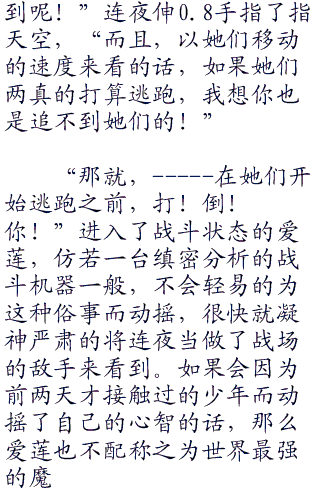 到呢！”连夜伸0.8手指了指
天空，“而且，以她们移动
的速度来看的话，如果她们
两真的打算逃跑，我想你也
是追不到她们的！”
“那就，-----在她们开
始逃跑之前，打！倒！
你！”进入了战斗状态的爱
莲，仿若一台缜密分析的战
斗机器一般，不会轻易的为
这种俗事而动摇，很快就凝
神严肃的将连夜当做了战场
的敌手来看到。如果会因为
前两天才接触过的少年而动
摇了自己的心智的话，那么
爱莲也不配称之为世界最强
的魔